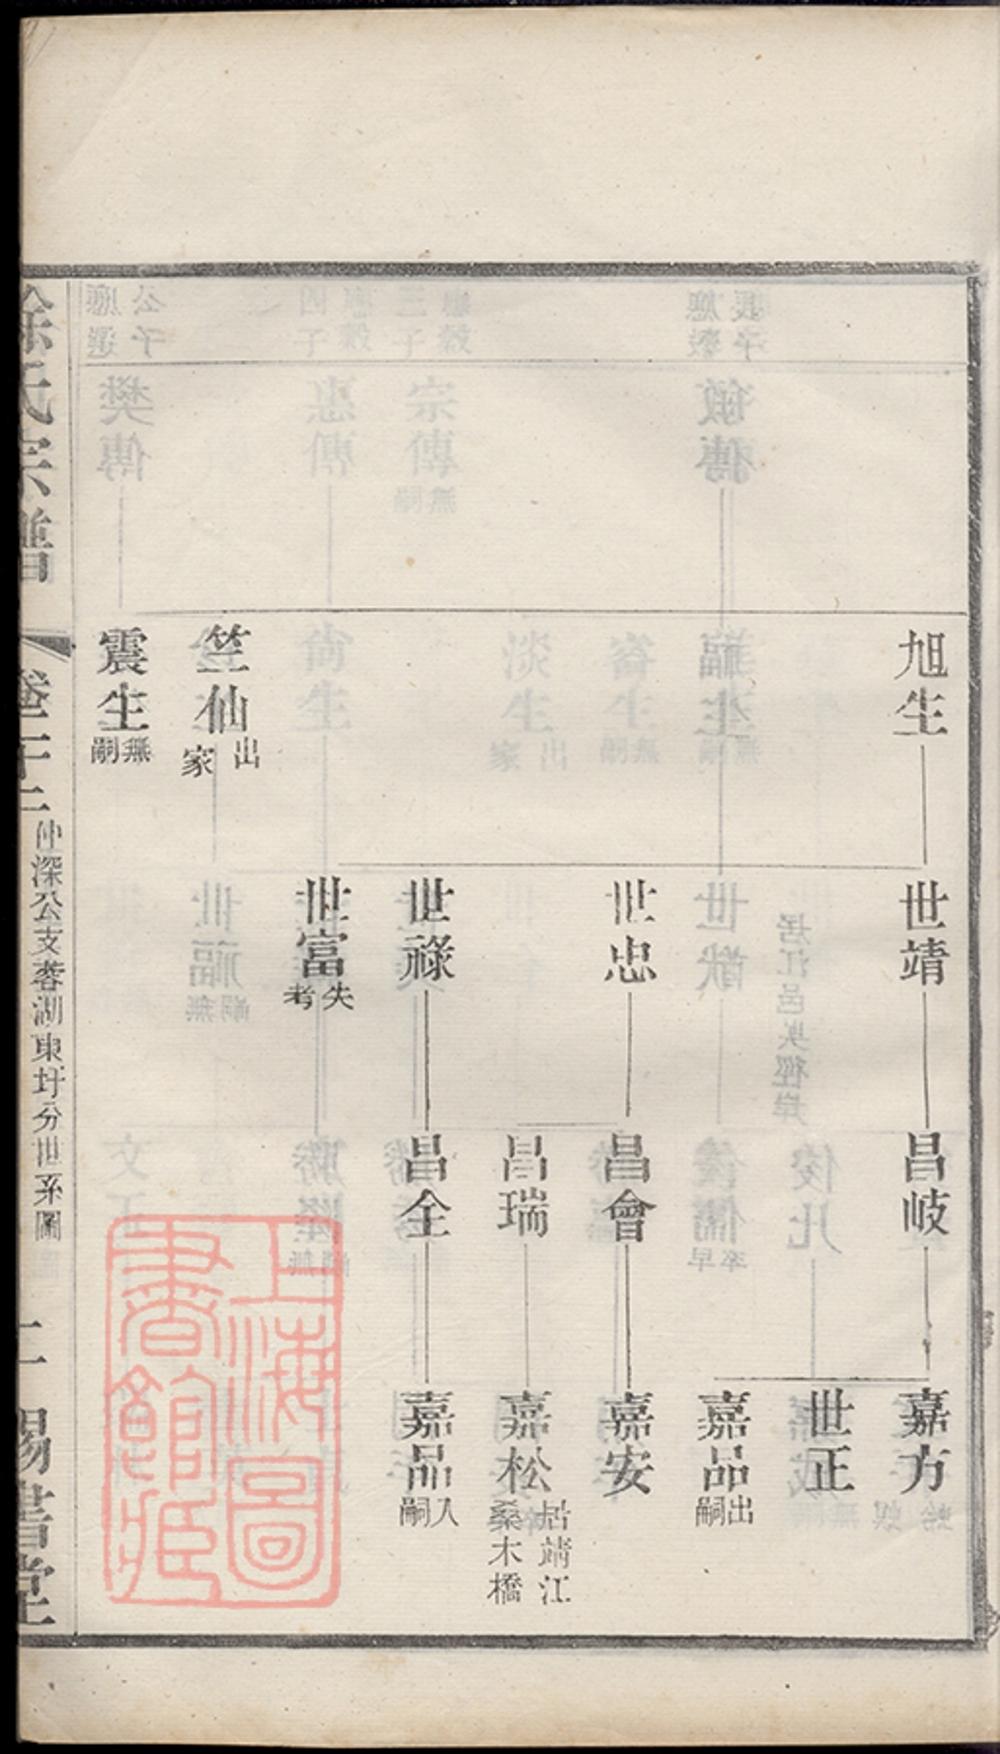 旭生
竺仙 出家
震生 無嗣
世靖
世忠
世祿
世富 失考
昌岐
昌會
昌瑞
昌全
嘉方
世正
嘉品 出嗣
嘉安
嘉松 居靖江桑木橋
嘉品 入嗣
徐氏宗譜
卷二十二
仲深公支蓉湖東圩分世系圖
二
錫書堂
上海圖書館藏